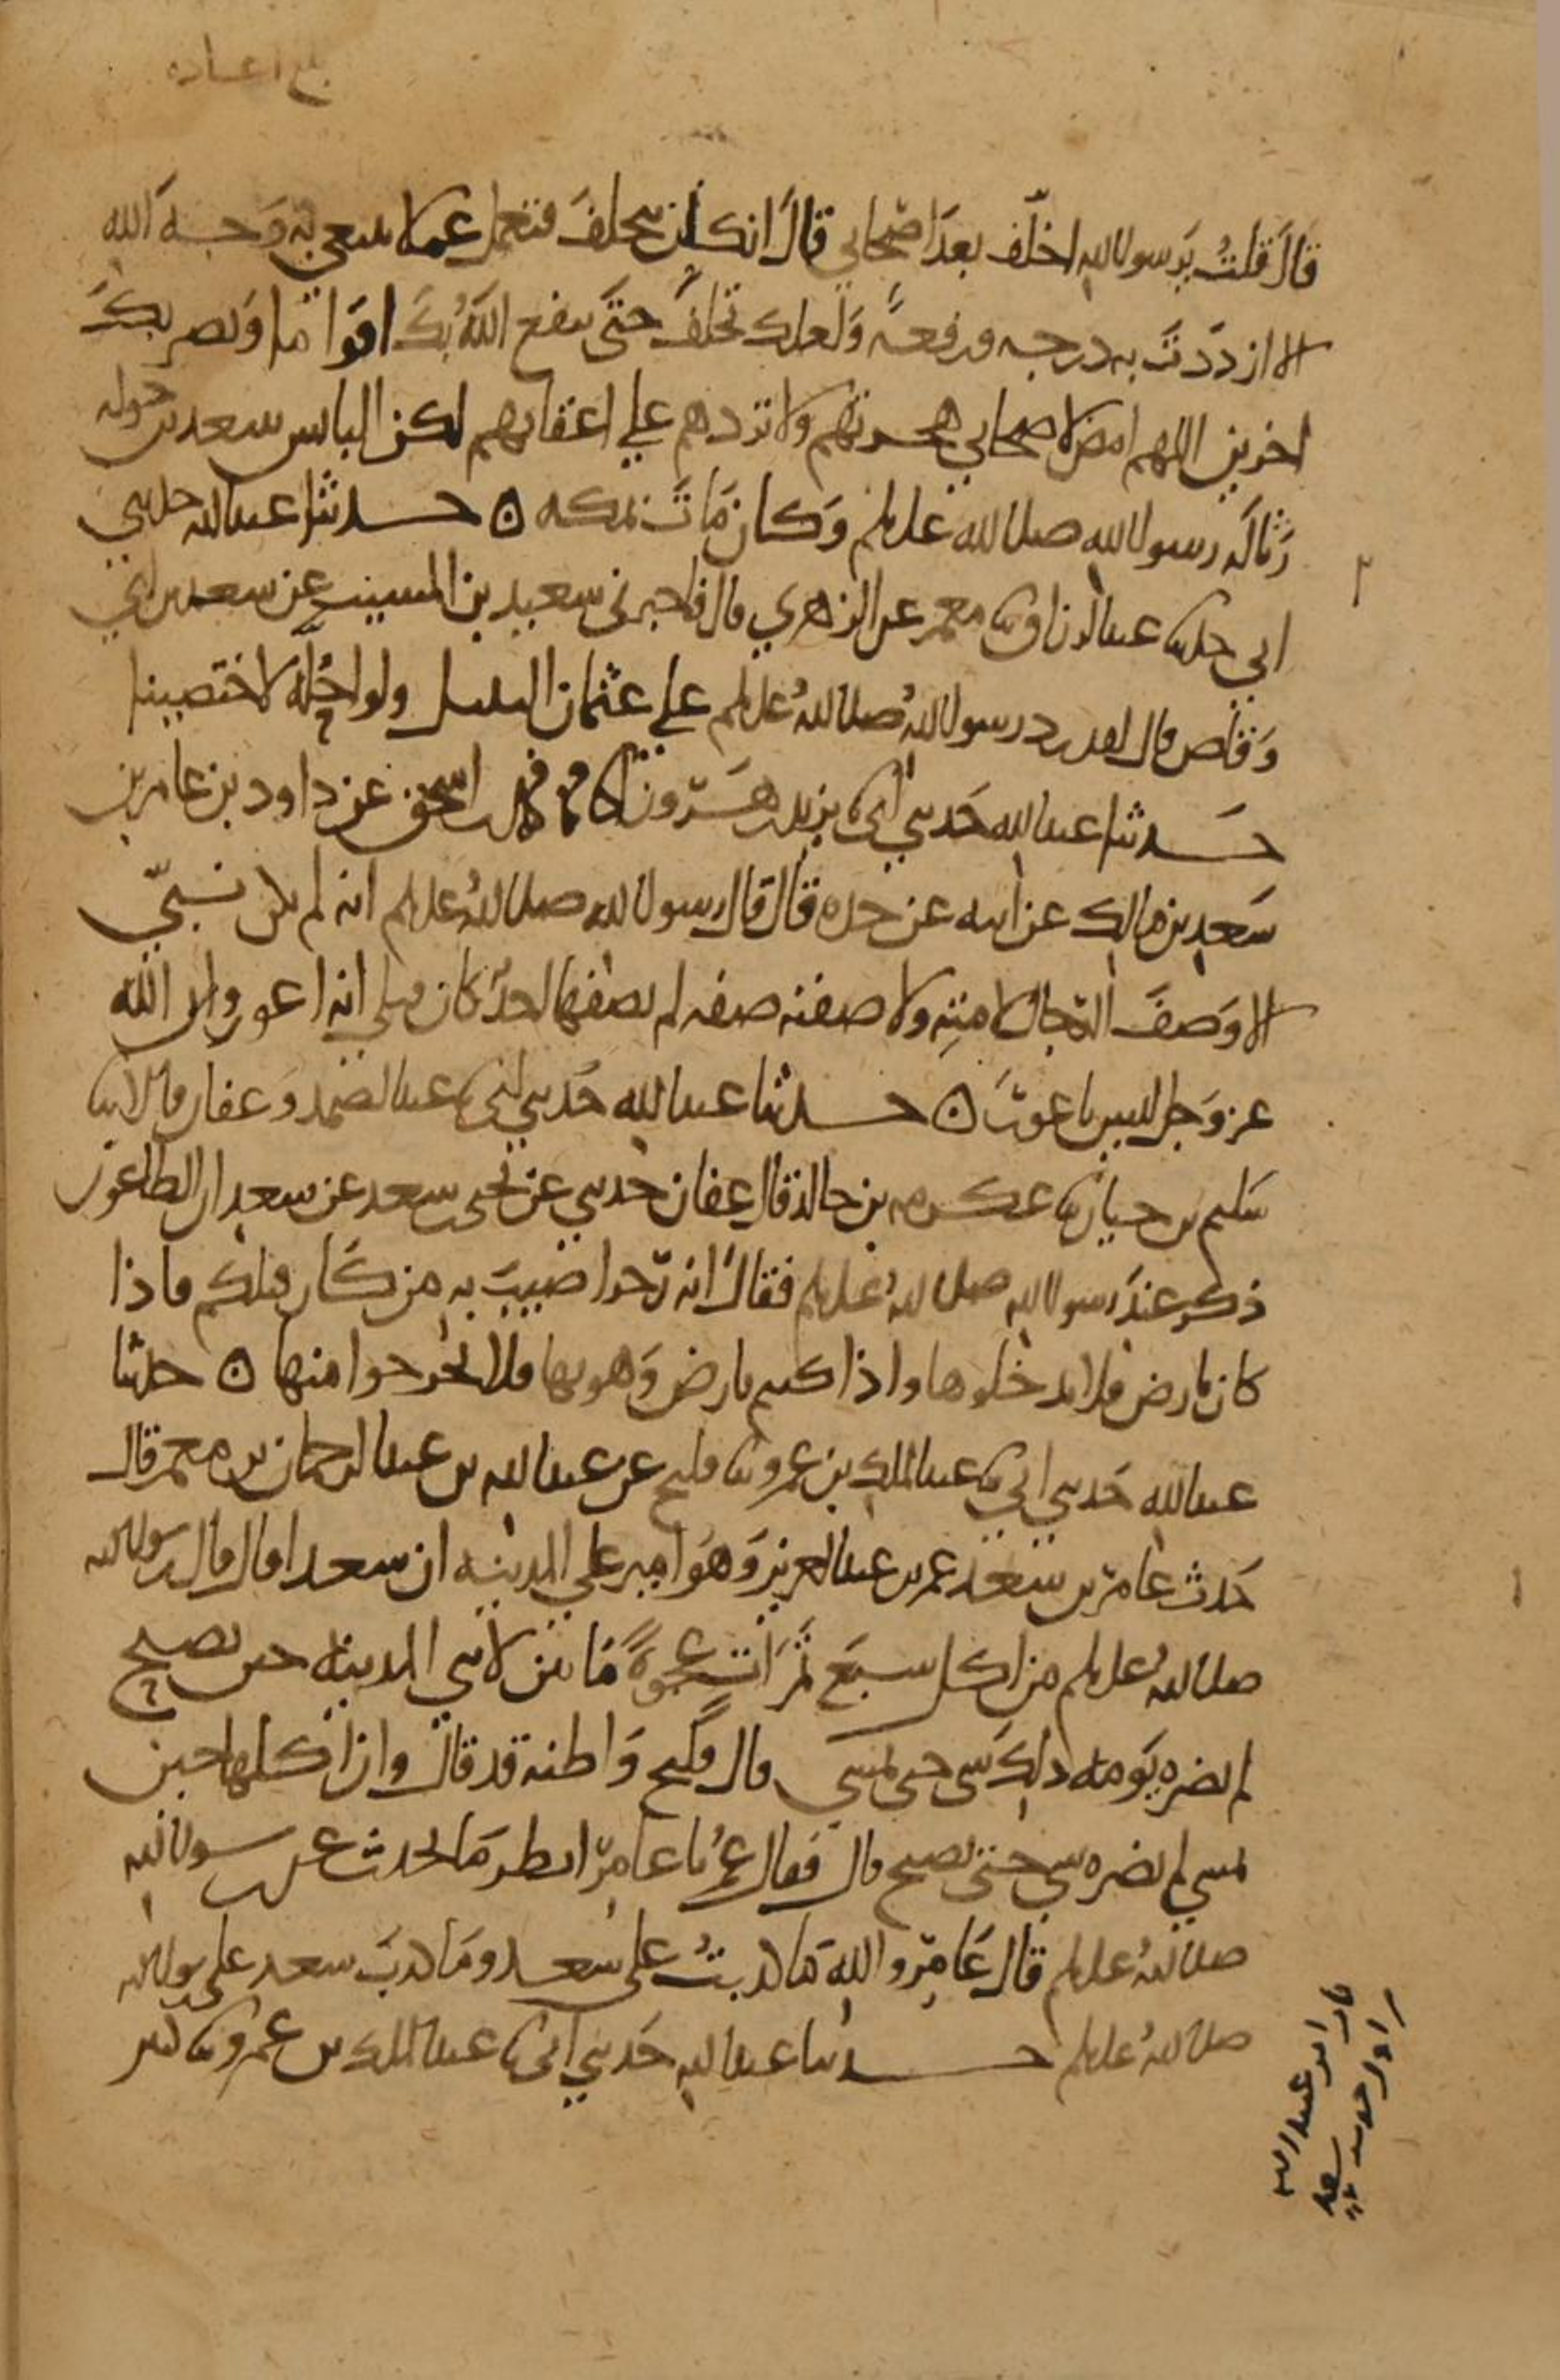 بلغ اعاده
قال قلت يرسول الله اخلف بعد اصحابي قال انك لن تخلف فتعمل عملا تبتغي به وجه الله
الا ازددت به درجه ورفعه ولعلك تخلف حتى ينفع الله بك اقواما ويضر بك
اخرين اللهم امض لاصحابي هجرتهم ولا تردهم علي اعقابهم لكن البايس سعد بن خوله
رثا له رسول الله صلى الله عليه وسلم وكان مات بمكه ٥ حدثنا عبد الله حدثني
ابي حدثنا عبد الرزاق ثنا معمر عن الزهري قال فاخبرني سعيد بن المسيب عن سعد بن ابي
وقاص قال لقد رد رسول الله صلى الله عليه وسلم علي عثمان التبتل ولو احله لاختصينا
حدثنا عبد الله حدثني ابي ثنا يزيد بن هرون انا محمد بن اسحق عن داود بن عامر بن
سعد بن مالك عن ابيه عن جده قال قال رسول الله صلى الله عليه وسلم انه لم يكن نبي
الا وصف الدجال لامته ولا صفنه صفه لم يصفها احد كان قبلي انه اعور وان الله
عز وجل ليس باعور ٥ حدثنا عبد الله حدثني ابي ثنا عبد الصمد وعفان قالا ثنا
سليم بن حيان ثنا عكرمه بن خالد قال عفان حدثني عن يحيى بن سعد عن سعد ان الطاعون
ذكر عند رسول الله صلى الله عليه وسلم فقال انه رجز اصيب به من كان قبلكم فاذا
كان بارض فلا تدخلوها واذا كنتم بارض وهو بها فلا تخرجوا منها ٥ حدثنا
عبد الله حدثني ابي ثنا عبد الملك بن عمرو ثنا فليح عن عبد الله بن عبد الرحمان بن معمر قال
حدث عامر بن سعد عمر بن عبد العزيز وهو امير علي المدينه ان سعدا قال قال رسول الله
صلى الله عليه وسلم من اكل سبع تمرات عجوة ما بين لابتي المدينه حين يصبح
لم يضره يومه ذلك شي حتى يمسي قال فليح واظنه قد قال وان اكلها حين
يمسي لم يضره شي حتى يصبح قال فقال عمر يا عامر انظر ما تحدث عن رسول الله
صلى الله عليه وسلم قال عامر والله ما كذبت على سعد وما كذب سعد على رسول الله
صلى الله عليه وسلم حدثنا عبد الله حدثني ابي ثنا عبد الملك بن عمرو ثنا كثير